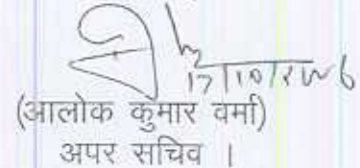 17/10/2006
(आलोक कुमार वर्मा)
अपर सचिव ।